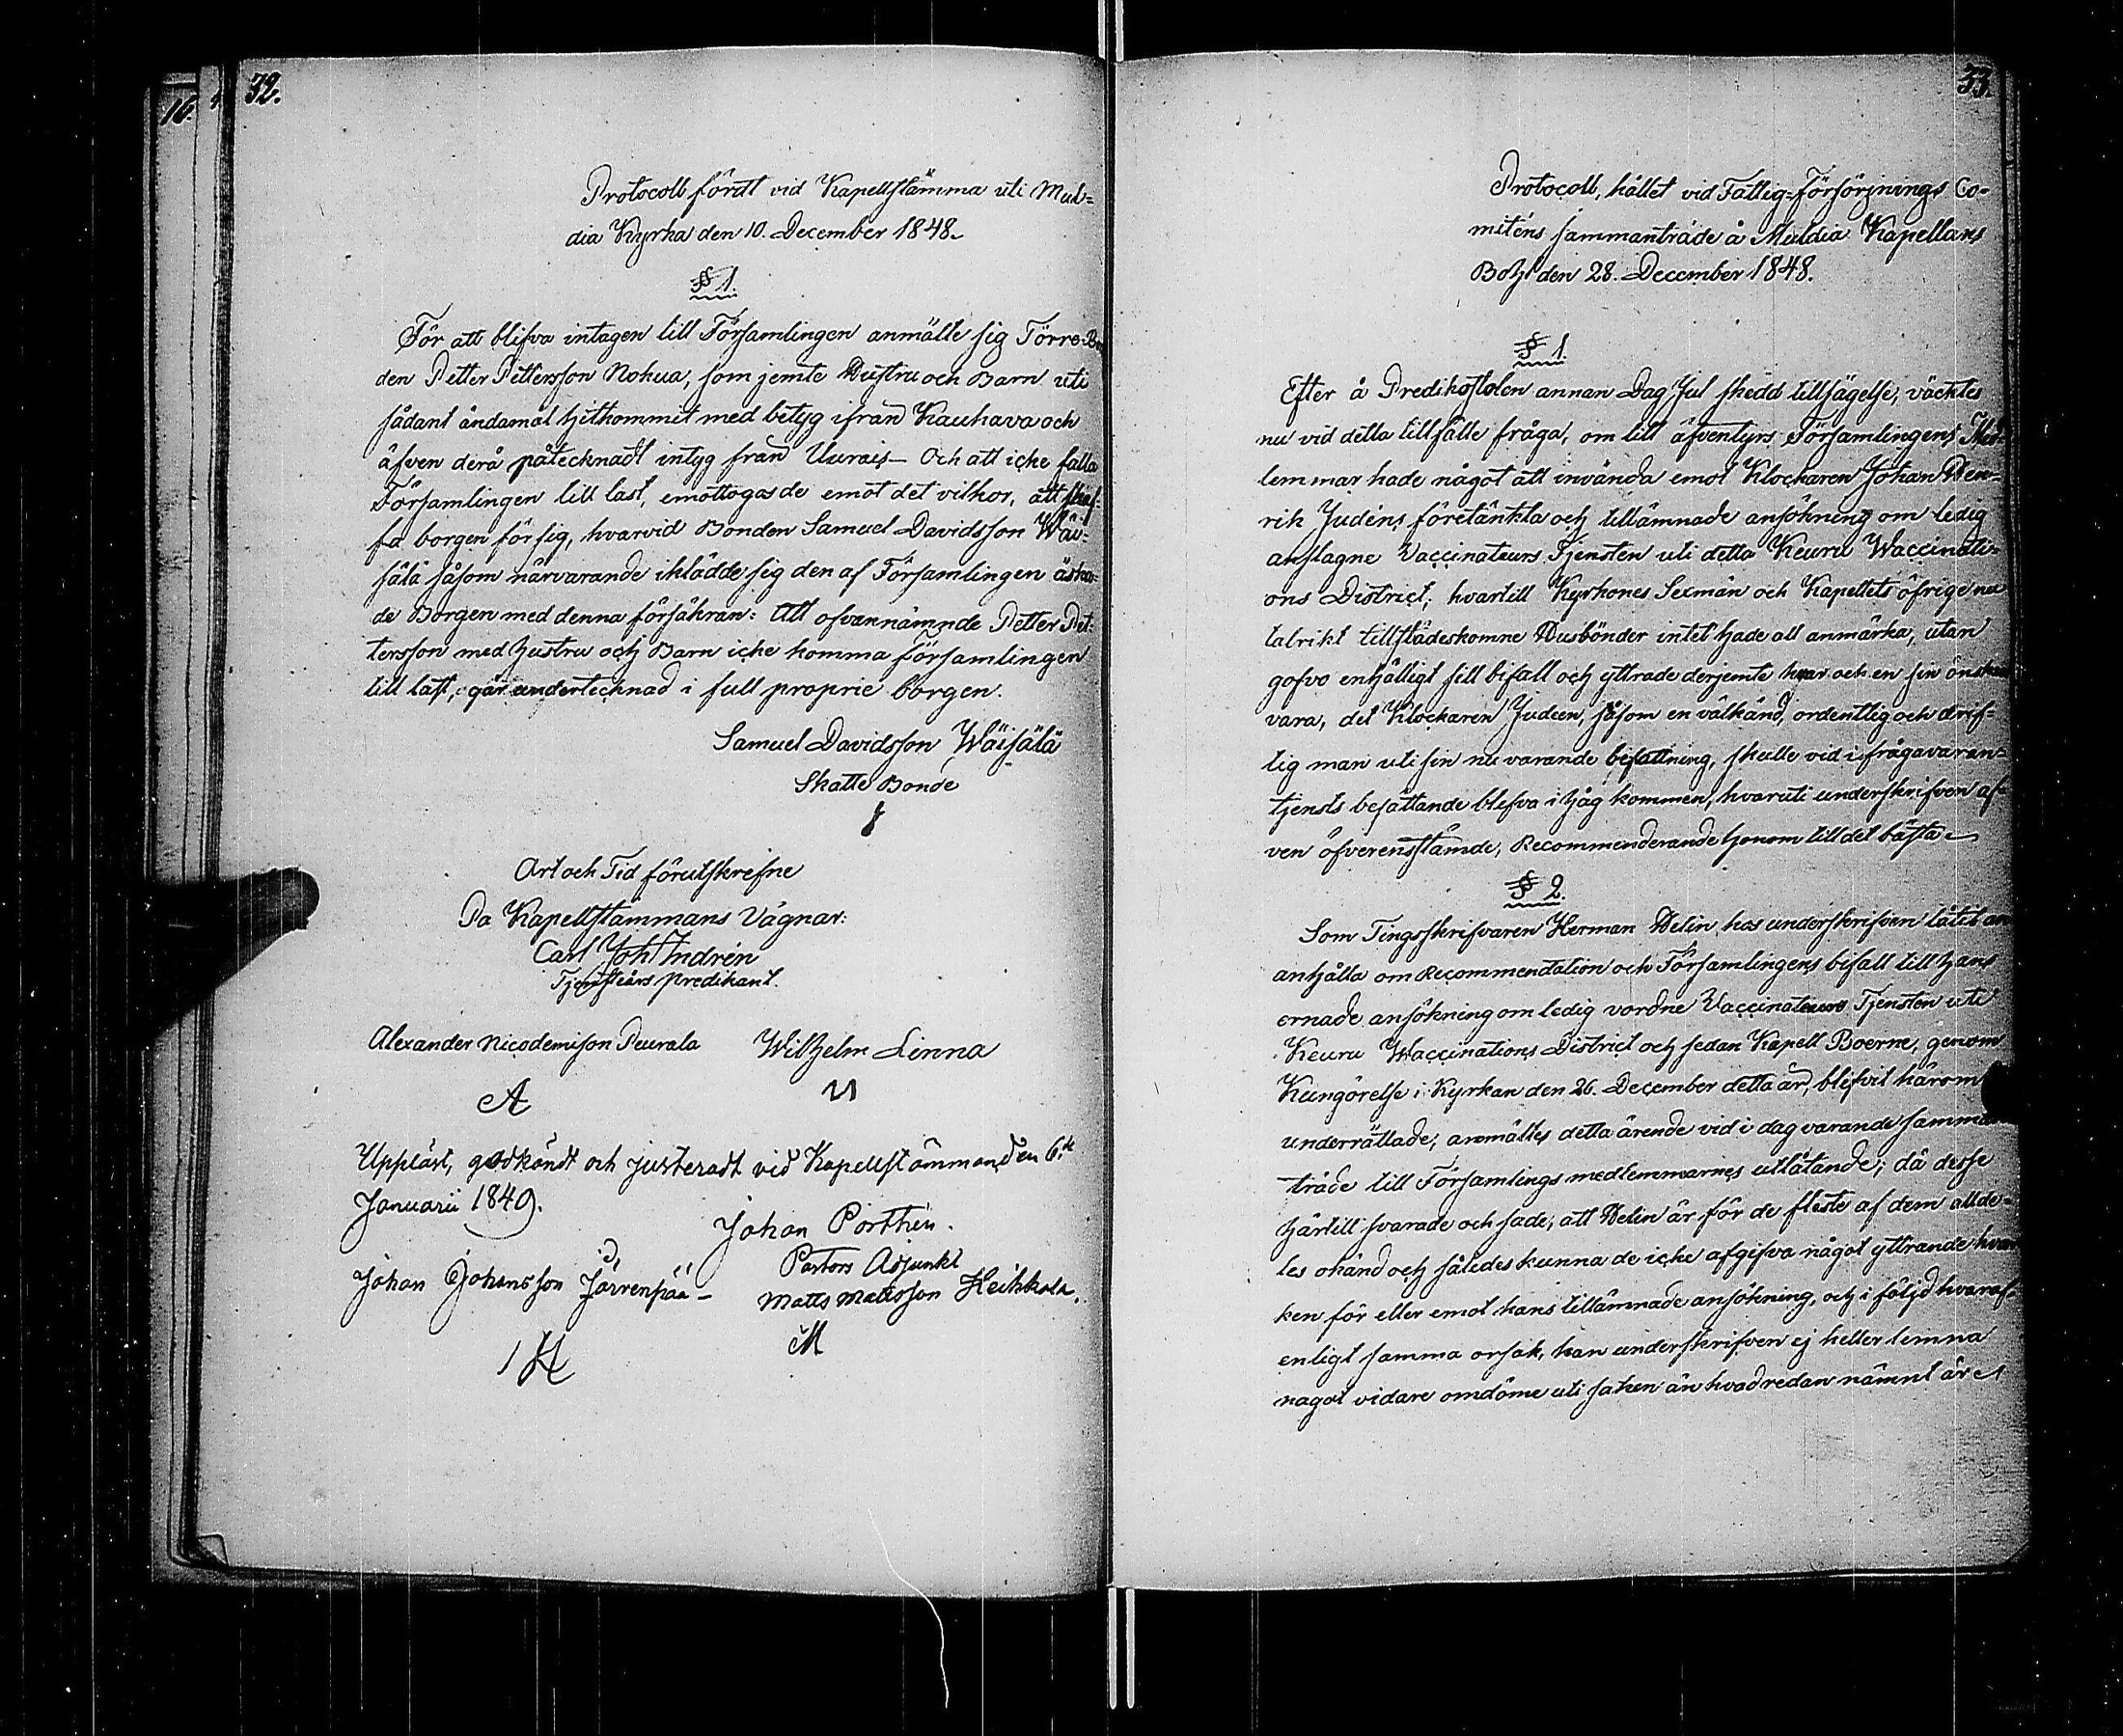 16.
32.
Protocoll fördt vid Kapellstämma uti Mul-
dia Kyrka den 10. December 1848.
§ 1.
För att blifva intagen till Församlingen anmälte sig Förre Bon
den Petter Pettersson Nokua, som jemte Hustru och Barn uti
sådant ändamål hitkommit med betyg ifrån Kauhava och
äfven derå påtecknadt intyg från Uurais – Och att icke falla
Församlingen till last, emottogas de emot det vilkor, att skaf-
fa borgen för sig, hvarvid Bonden Samuel Davidsson Wäi-
sälä såsom närvarande iklädde sig den af Församlingen äska-
de Borgen med denna försäkran: Att ofvannämnde Petter Pet-
tersson med hustru och Barn icke komma Församlingen
till last, går undertecknad i full proprie borgen.
Samuel Davidsson Wäisälä
Skatte Bonde
Ort och Tid förutskrefne
På Kapellstämmans Vägnar:
Carl Joh Indrén
Tjensteårs predikant.
Alexander Nicodemison Peurala Wilhelm Linna
A
Uppläst, godkändt och justeradt vid Kapellstämman, den 6te
Januarii 1849.
Johan Porthén.
Pastors Adjunkt
Johan Johansson Järvenpää – Matts Mattsson Heikkala.
M
33.
Protocoll, hållet vid Fattig-Försörjnings Co-
miténs sammanträde å Muldia Kapellans
Bohl den 28. December 1848.
§ 1.
Efter å Predikostolen annan Dag Jul skedd tillsägelse, väcktes
nu vid detta tillfälle fråga, om till äfventyrs Församlingens Med-
lemmar hade något att invända emot Klockaren Johan Hen-
rik Judéns företänkta och tillämnade ansökning om ledig
anslagne Vaccinateurs Tjensten uti detta Keuru Waccinati-
ons District; hvartill Kyrkones Sexmän och Kapellets öfrige nu
talrikt tillstädeskomne Husbönder intet hade att anmärka, utan
gofvo enhälligt sitt bifall och yttrade derjemte hvar och en sin önskan
vara, det Klockaren Judeen, såsom en välkänd, ordentlig och drif-
tig man uti sin nu varande befattning, skulle vid ifrågavaran-
tjensts besättande blefva i håg kommen, hvaruti underskrifven äf-
ven öfverensstämde, Recommenderande honom till det bästa
§ 2.
Som Tingsskrifvaren Herman Helin hos underskrifven låtit an
anhålla om Recommendation och Församlingens bifall till hans
ernade ansökning om ledig vordne Vaccinateurs Tjensten uti
Keuru Waccinations District och sedan Kapell Boerne, genom
Kungörelse i Kyrkan den 26. December detta år, blifvit härom
underrättade, anmältes detta ärende vid i dag varande samman
träde till Församlings medlemmarnes utlåtande; då desse
härtill svarade och sade, att Helin är för de fleste af dem allde-
les okänd och således kunna de icke afgifva något yttrande hvar
ken för eller emot hans tillämnade ansökning, och i följd hvaraf,
enligt samma orsak, kan underskrifven ej heller lemna
något vidare omdöme uti saken än hvad redan nämnt är